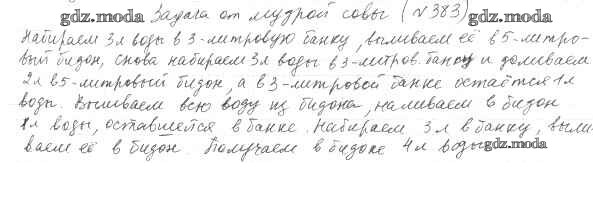 gdz.moda Задача от мудрой совы (№383) gdz.moda
Набираем 3л воды в 3-литровую банку, выливаем её в 5-литро-
вый бидон, снова набираем 3л воды в 3-литров. банку и доливаем
2л в 5-литровый бидон, а в 3-литровой банке остаётся 1л
воды. Выливаем всю воду из бидона, наливаем в бидон
1л воды, оставшейся в банке. Набираем 3л в банку, выли-
ваем её в бидон. Получаем в бидоне 4л воды
gdz.moda gdz.moda gdz.moda